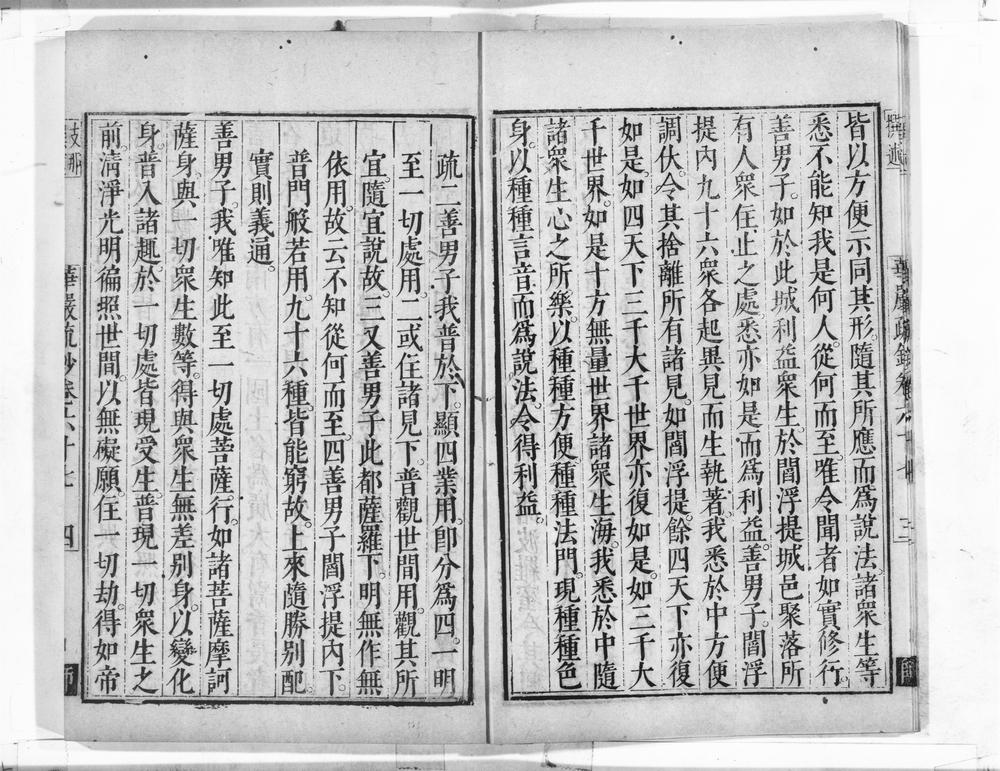 皆以方便示同其形。隨其所應而爲說法。諸衆生等
悉不能知我是何人。從何而至。唯令聞者如實修行。
善男子。如於此城利益衆生。於閻浮提城邑聚落所
有人衆住止之處。悉亦如是而爲利益。善男子。閻浮
提內九十六衆各起異見而生執著。我悉於中方便
調伏。令其捨離所有諸見。如閻浮提。餘四天下亦復
如是。如四天下三千大千世界亦復如是。如三千大
千世界。如是十方無量世界諸衆生海。我悉於中隨
諸衆生心之所樂。以種種方便種種法門。現種種色
身。以種種言音而爲說法。令得利益。
疏二善男子我普於下。顯四業用。卽分爲四。一明
至一切處用。二或住諸見下。普觀世間用。觀其所
宜。隨宜說故。三又善男子此都薩羅下。明無作無
依用。故云不知從何而至。四善男子閻浮提內下。
普門般若用。九十六種。皆能窮故。上來隨勝別配。
實則義通。
善男子。我唯知此至一切處菩薩行。如諸菩薩摩訶
薩身。與一切衆生數等。得與衆生無差别身。以變化
身。普入諸趣。於一切處皆現受生。普現一切衆生之
前。淸淨光明徧照世間。以無礙願。住一切劫。得如帝
華嚴疏鈔卷六十七 四